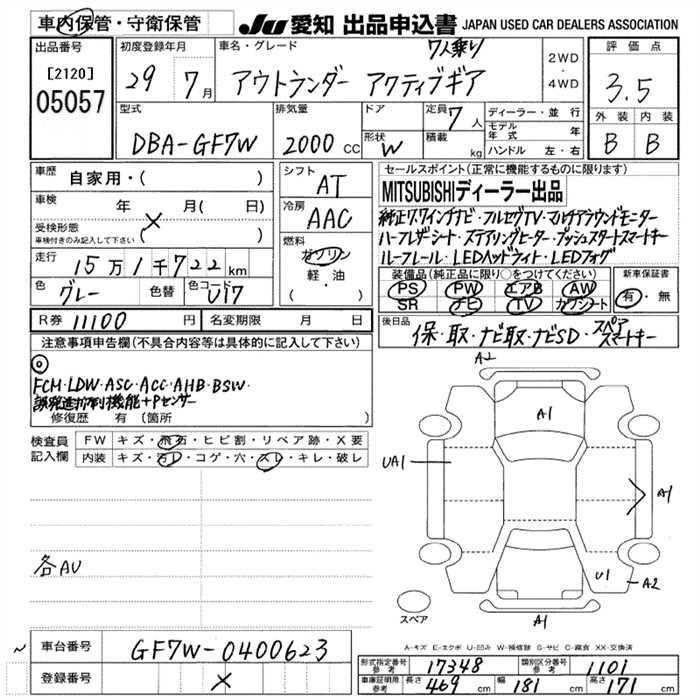 車内保管・守衛保管
JU 愛知 出品申込書 JAPAN USED CAR DEALERS ASSOCIATION
出品番号
[2120]
05057
初度登録年月
29 7月
車名・グレード
7人乗り
アウトランダー アクティブギア
2WD
・
4WD
評価点
3.5
外装 内装
B B
型式
DBA-GF7W
排気量
2000 CC
ドア
形状 W
定員 7人
積載 kg
ディーラー・並行
モデル年式 年
ハンドル 左・右
車歴
自家用・( )
車検 年 月( 日)
受検形態
車検付きのみ記入して下さい ( )
×
走行 15万1千722km
色 グレー 色替 色コード U17
シフト
AT
冷房
AAC
燃料
ガソリン
軽・油
( )
セールスポイント(正常に機能するものに限ります)
MITSUBISHIディーラー出品
純正7.7インチナビ・フルセグTV・マルチアラウンドモニター
ハーフレザーシート・ステアリングヒーター・プッシュスタートスマートキー
ルーフレール・LEDヘッドライト・LEDフォグ
装備品(純正品に限り○をつけてください)
PS PW エアB AW
SR ナビ TV カワシート
新車保証書
有・無
R券 11100 円 名変期限 月 日
後日品
保・取・ナビ取・ナビSD・スペアスマートキー
注意事項申告欄(不具合内容等は具体的に記入して下さい)
◎
FCM・LDW・ASC・ACC・AHB・BSW・
誤発進抑制機能+Pセンサー
修復歴 有 (箇所 )
検査員記入欄
FW キズ・飛石・ヒビ割・リペア跡・X要
内装 キズ・汚レ・コゲ・穴・スレ・キレ・破レ
各AU
A2
A1
UA1
A1
U1
A2
A1
スペア
A-キズ E-エクボ U-凹み W-補修跡 S-サビ C-腐食 XX-交換済
~
車台番号 GF7W-0400623
登録番号 ×
形式指定番号 参考 17348 類別区分番号 参考 1101
車庫証明用参考 長さ 469 cm 幅 181 cm 高さ 171 cm